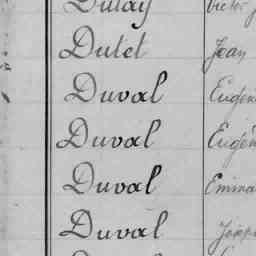 Dulay Victor
Dutet Jean
Duval Eugèn
Duval Eugèn
Duval Emma
Duval